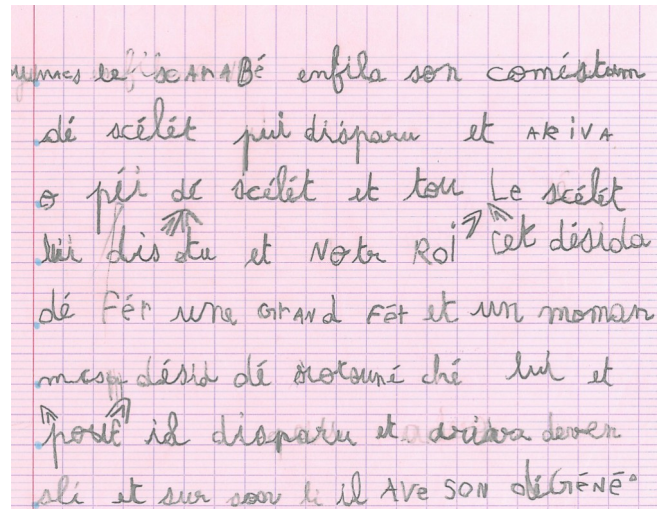 le scARABé enfila son coméstum
dé scélét pui disparu et ARiVA
o péi dé scélét et tou Le scélét
lui dis tu et Notr Roi cet désida
dé Fér une GrANd Fét et un moman
désid dé retourné ché lui et
il disparu et ariva deven
sli et sur son li il AVe SON déGéNé